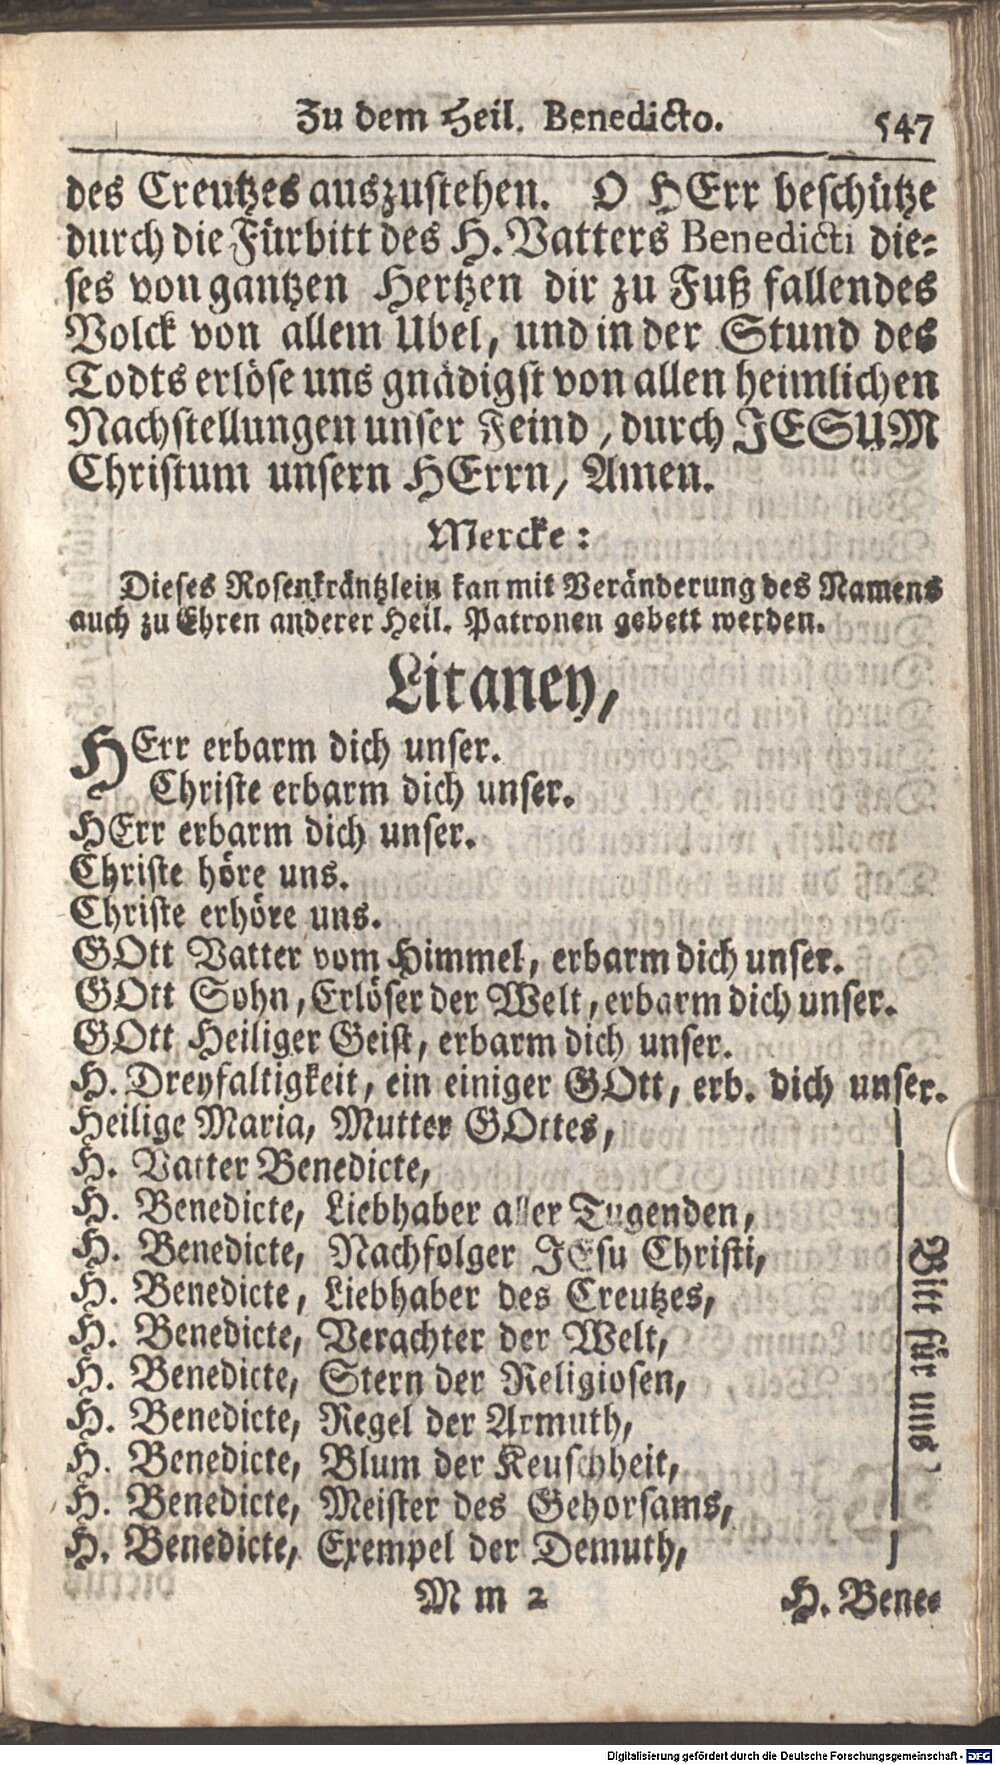 Zu dem Heil. Benedicto. 547
des Creutzes auszustehen. O HErr beschütze
durch die Fürbitt des H. Vatters Benedicti die=
ses von gantzen Hertzen dir zu Fuß fallendes
Volck von allem Ubel, und in der Stund des
Todts erlöse uns gnädigst von allen heimlichen
Nachstellungen unser Feind, durch JESUM
Christum unsern HErrn, Amen.
Mercke:
Dieses Rosenkräntzlein kan mit Veränderung des Namens
auch zu Ehren anderer Heil. Patronen gebett werden.
Litaney,
HErr erbarm dich unser.
Christe erbarm dich unser.
HErr erbarm dich unser.
Christe höre uns.
Christe erhöre uns.
GOtt Vatter vom Himmel, erbarm dich unser.
GOtt Sohn, Erlöser der Welt, erbarm dich unser.
GOtt Heiliger Geist, erbarm dich unser.
H. Dreyfaltigkeit, ein einiger GOtt, erb. dich unser.
Heilige Maria, Mutter GOttes,
H. Vatter Benedicte,
H. Benedicte, Liebhaber aller Tugenden,
H. Benedicte, Nachfolger JEsu Christi,
H. Benedicte, Liebhaber des Creutzes,
H. Benedicte, Verachter der Welt,
H. Benedicte, Stern der Religiosen,
H. Benedicte, Regel der Armuth,
H. Benedicte, Blum der Keuschheit,
H. Benedicte, Meister des Gehorsams,
H. Benedicte, Exempel der Demuth,
Bitt für uns
M m 2 H. Bene=
Digitalisierung gefördert durch die Deutsche Forschungsgemeinschaft - DFG